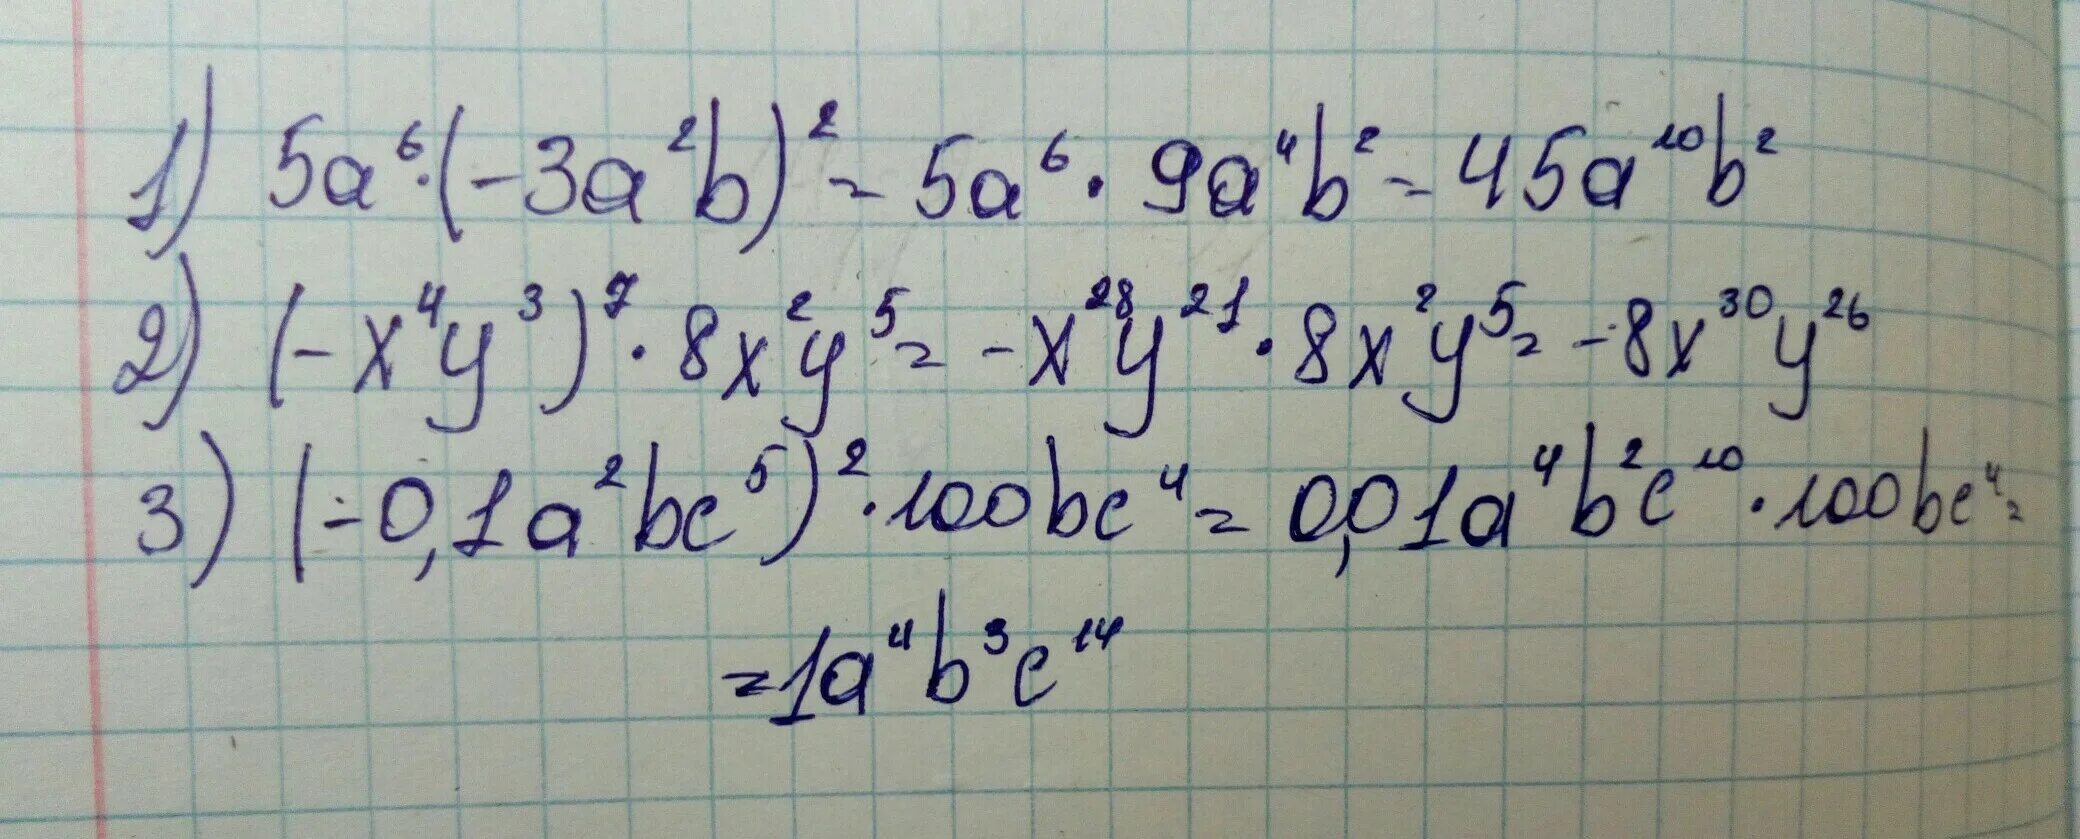 1) 5a⁶·(-3a²b)² = 5a⁶·9a⁴b² = 45a¹⁰b²
2) (-x⁴y³)⁷·8x²y⁵ = -x²⁸y²¹·8x²y⁵ = -8x³⁰y²⁶
3) (-0,1a²bc⁵)²·100bc⁴ = 0,01a⁴b²c¹⁰·100bc⁴ =
= 1a⁴b³c¹⁴